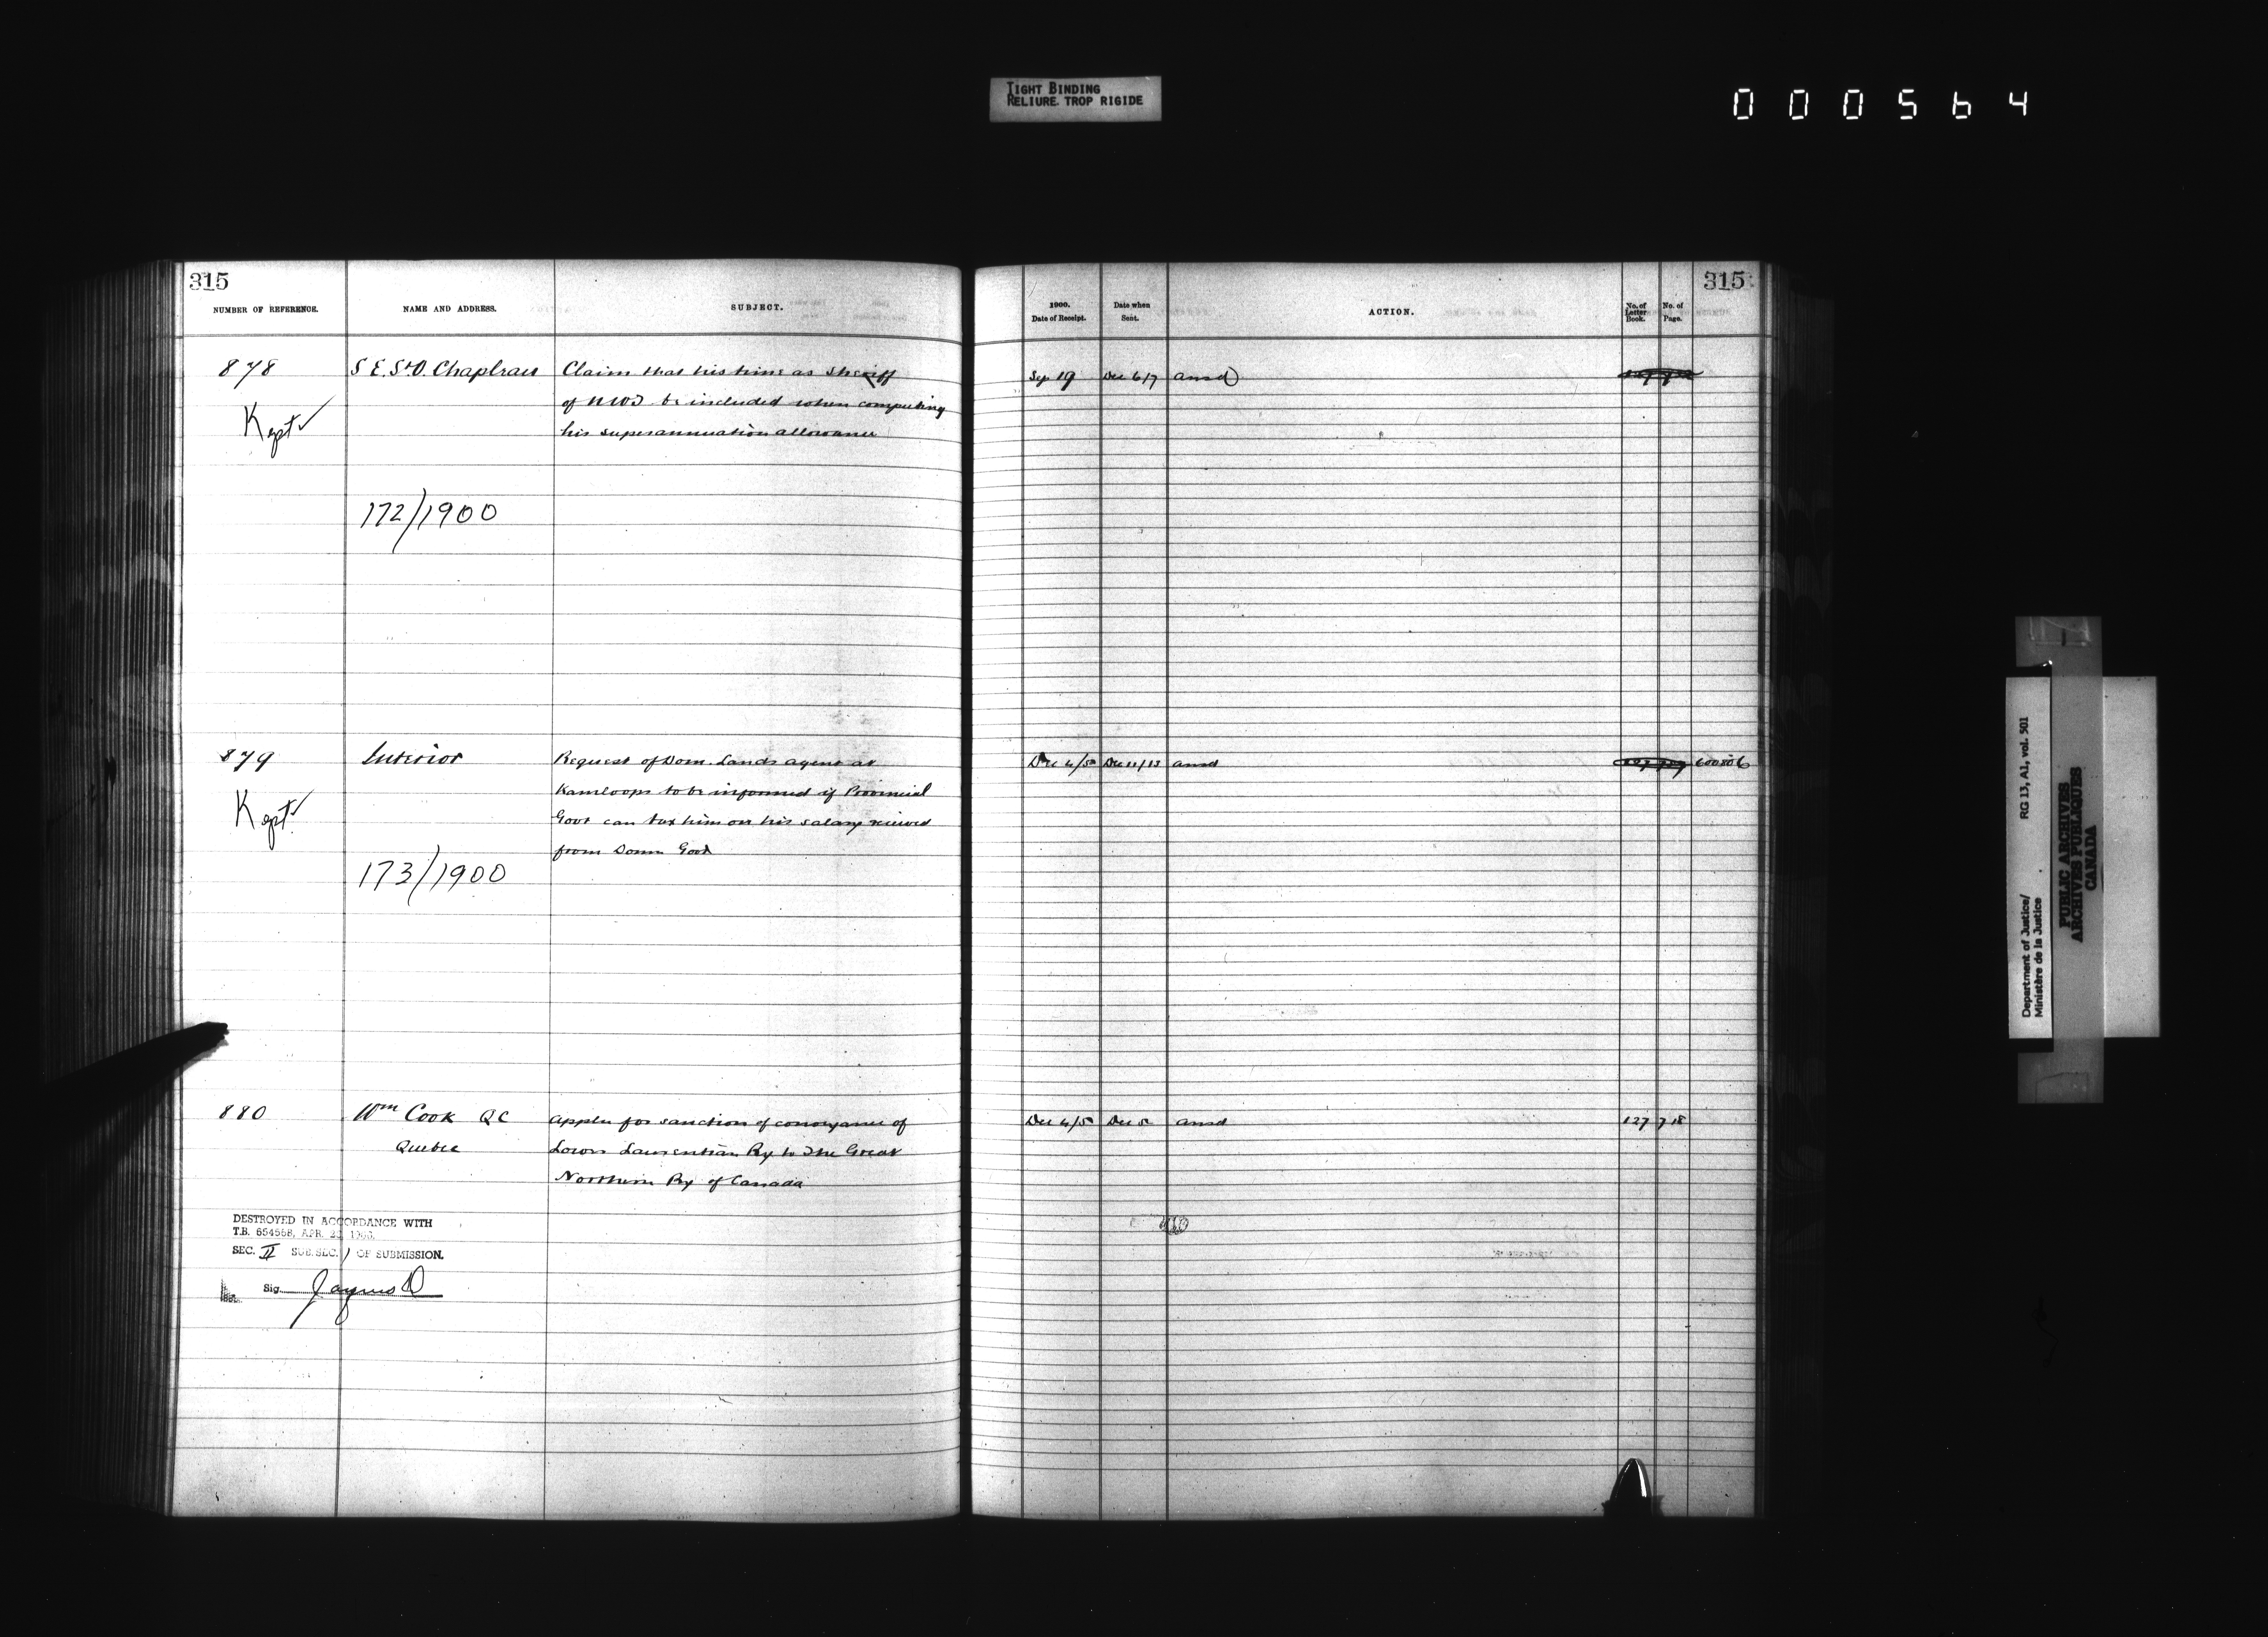 TIGHT BINDING
RELIURE TROP RIGIDE
000564
315
315
NUMBER OF REFERENCE.
NAME AND ADDRESS.
SUBJECT.
1900.
Date of Receipt.
Date when
Sent.
ACTION.
No. of
Letter
Book.
No. of
Page.
878
S E. St O. Chapleau
Claim that his time as Sheriff
of NWT be included when computing
his superannuation allowance
Sep 19
Dec 6/7
ansd
Kept ✓
172/1900
879
Interior
Request of Dom. Lands agent at
Kamloops to be informed if Provincial
Govt can tax him on his salary received
from Domn Govt
Dec 4/5
Dec 11/13
ansd
Kept ✓
173/1900
880
Wm Cook QC
Quebec
Appln for sanction of conveyance of
Lower Laurentian Ry to The Great
Northern Ry of Canada
Dec 4/5
Dec 5
ansd
127
718
DESTROYED IN ACCORDANCE WITH
T.B. 654568, APR. 22,
SEC. II SUB.SEC. 1 OF SUBMISSION.
Sig.
Department of Justice/
Ministère de la Justice
RG 13, A1, vol. 501
PUBLIC ARCHIVES
ARCHIVES PUBLIQUES
CANADA